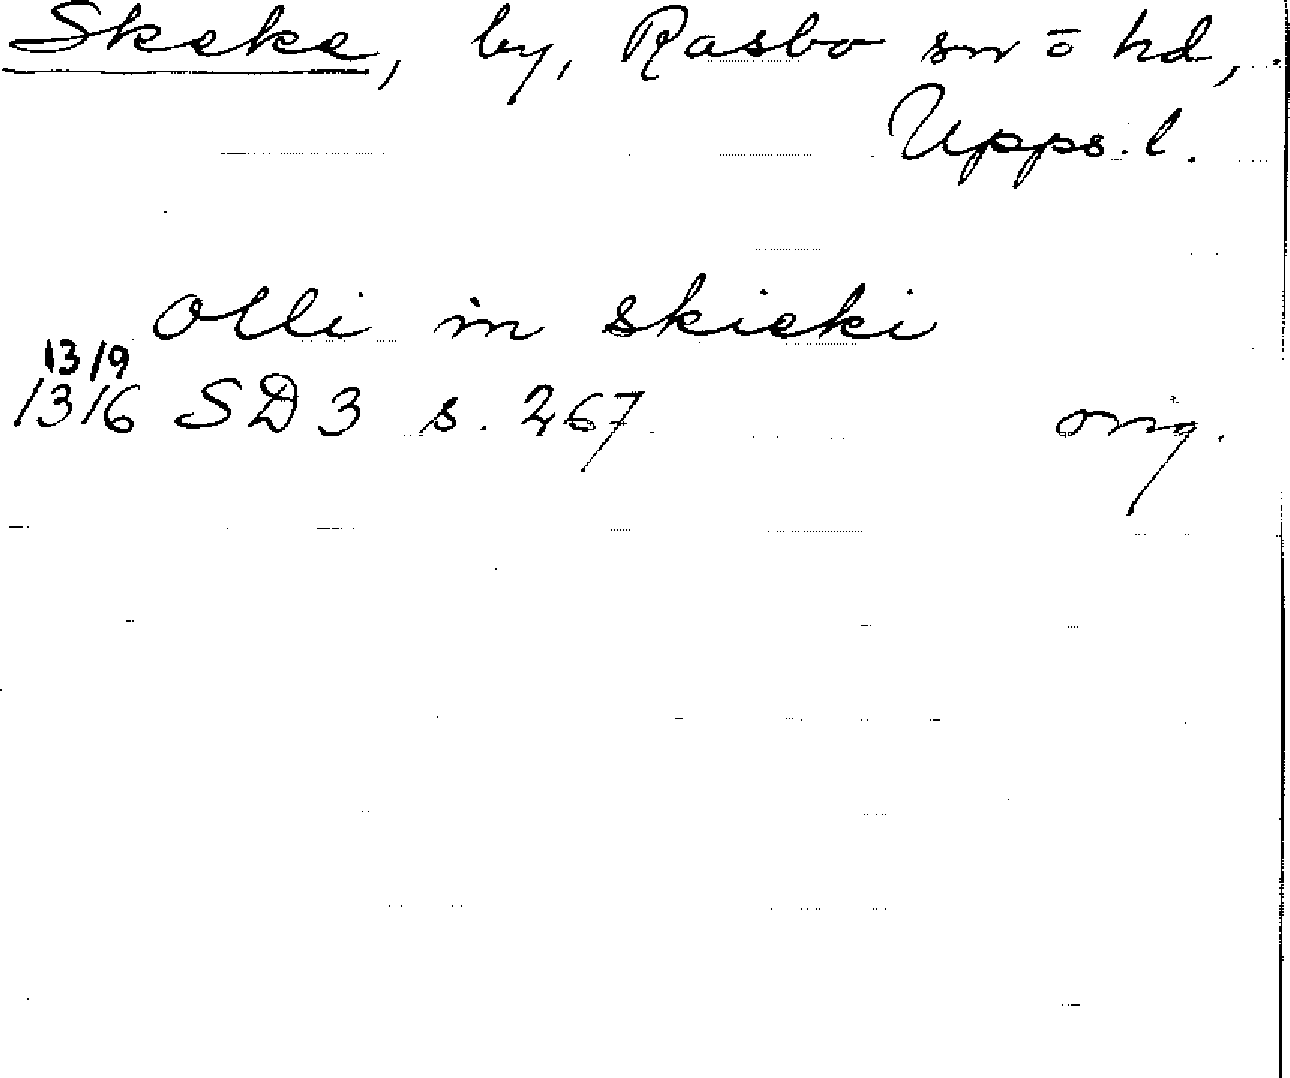 Skeke, by, Rasbo sn o hd,
Upps. l.
Olli in skieki
13/9
1316 SD 3 s. 267 orig.